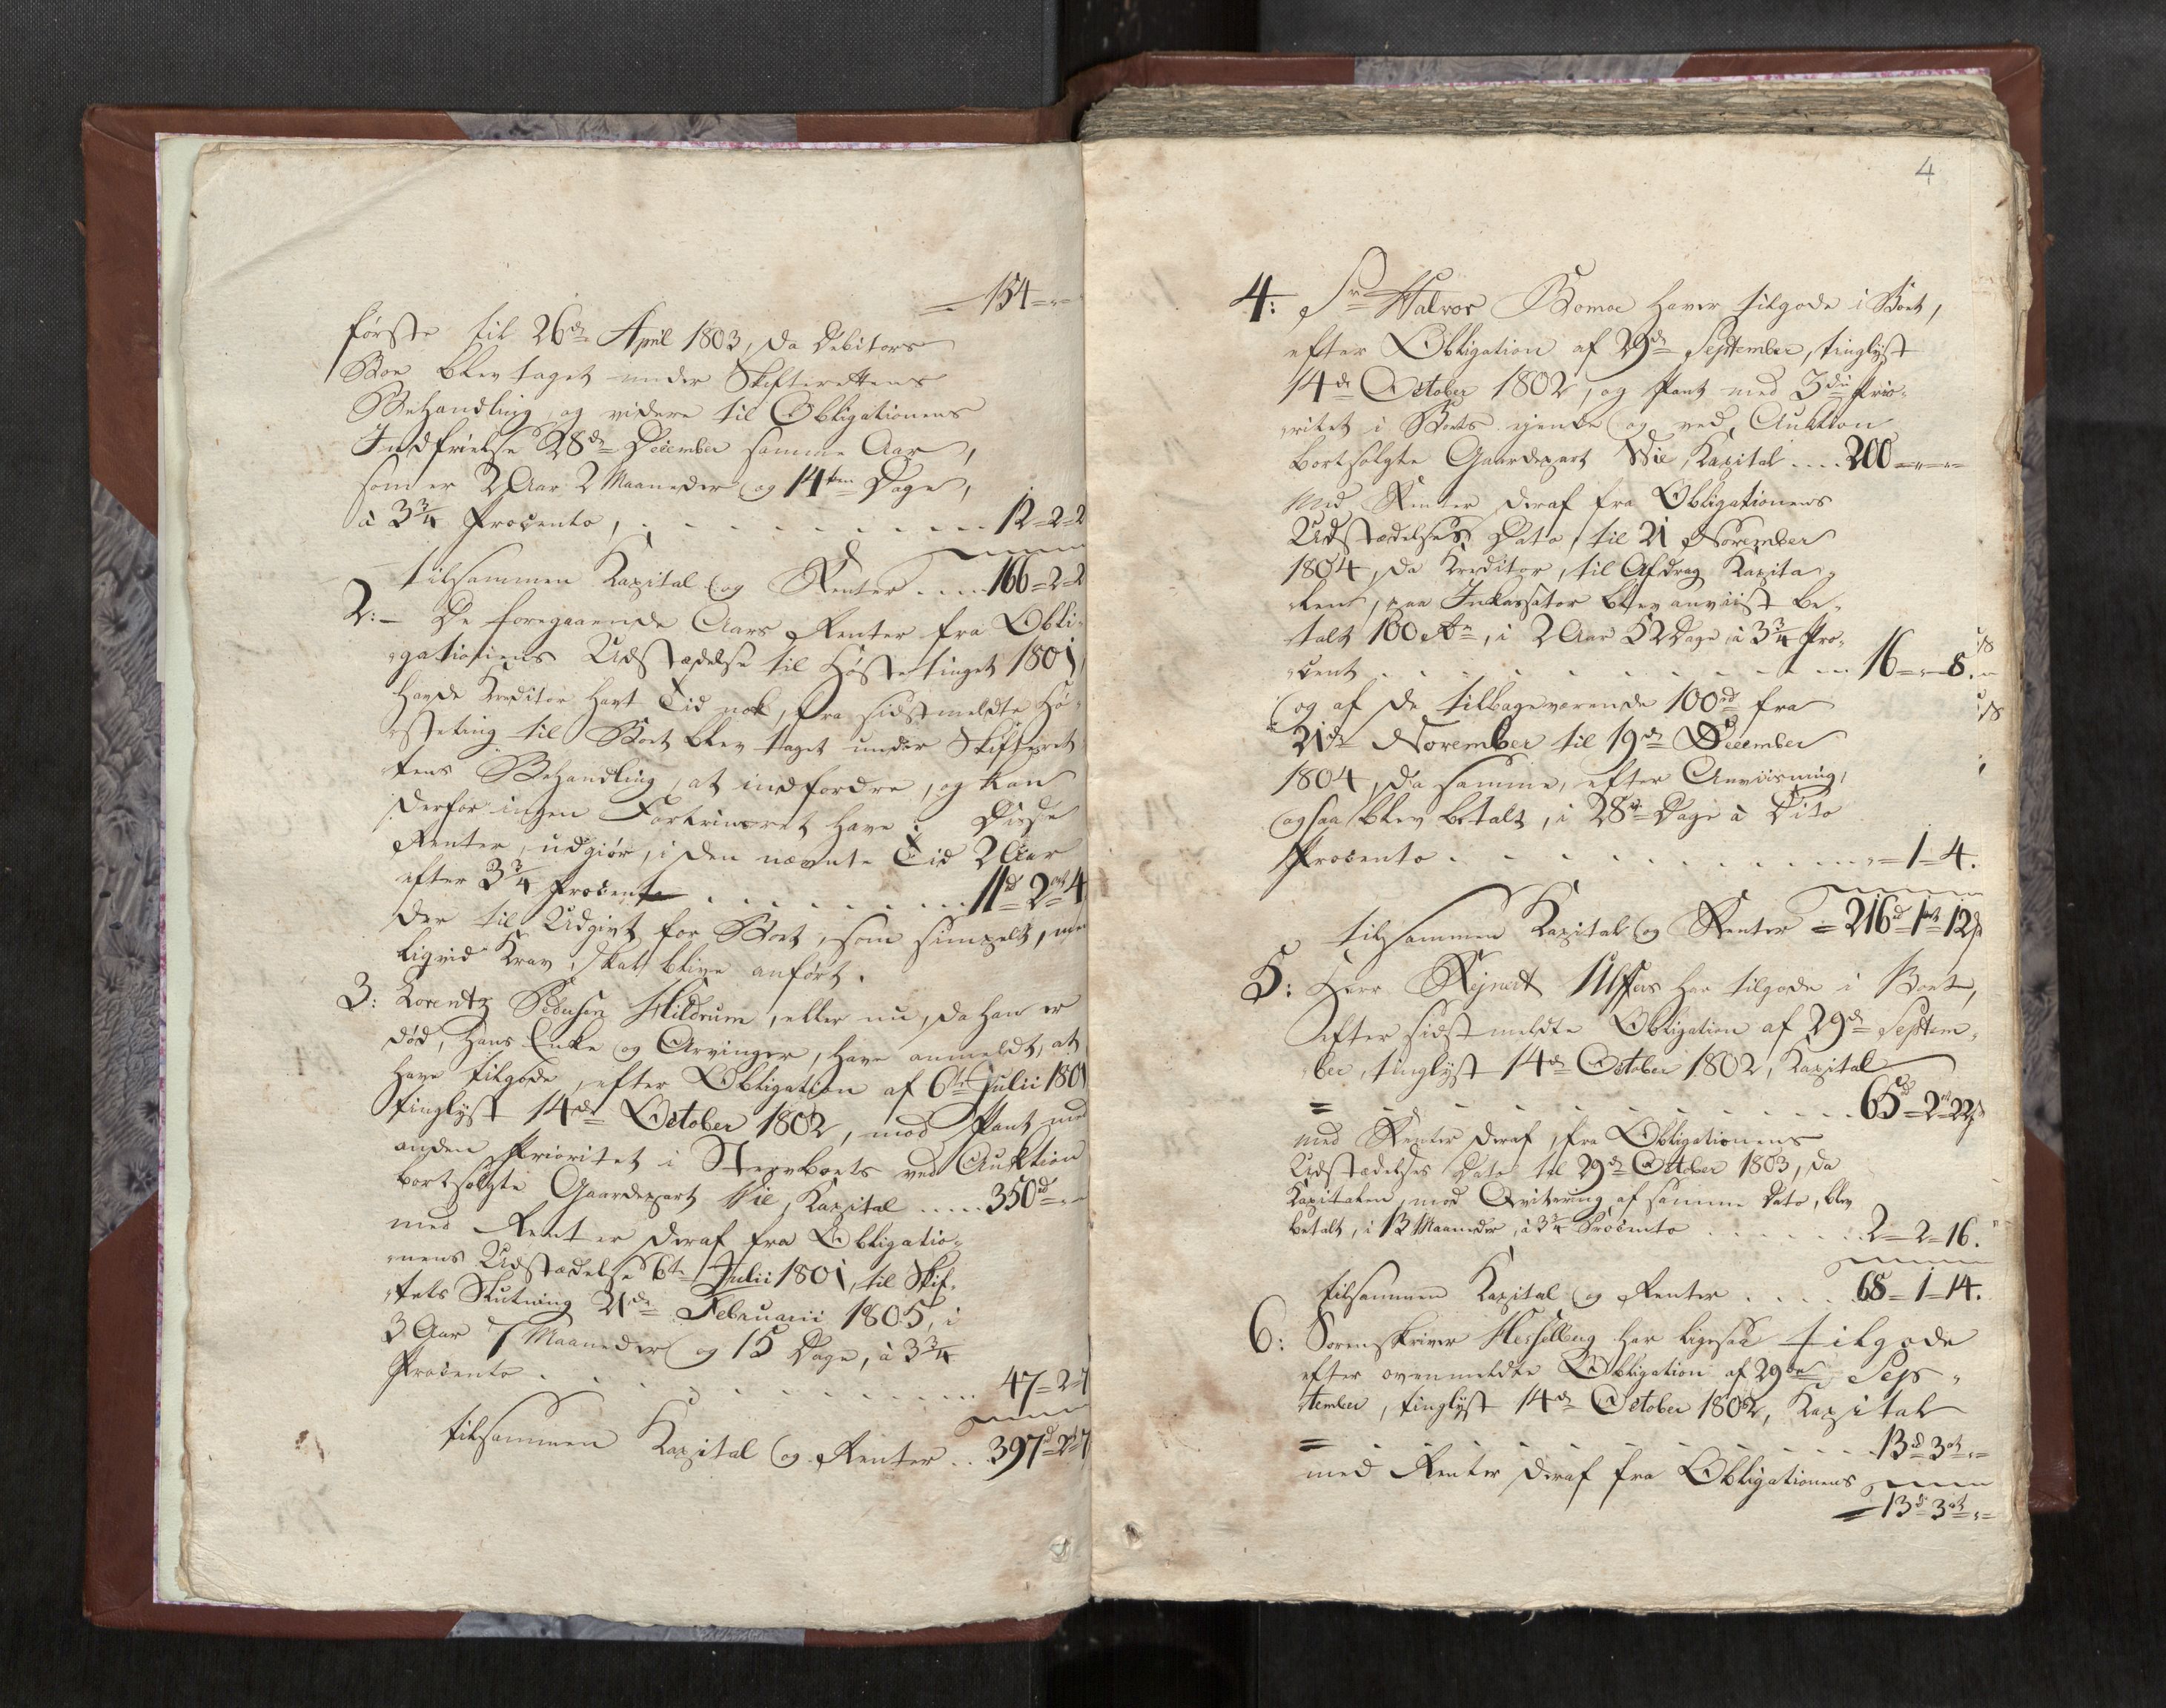 = 154 = "=
første til 26de April 1803, da Debitors
Boe blev taget under Skifterettens
Behandling, og videre til Obligationens
Indfrielse 28de December samme Aar,
som er 2 Aar 2 Maaneder og 14ten Dage,
à 3¾ Procento, . . . . . . . . . 12=2=2
tilsammen Kapital og Renter .... 166=2=2
2:- De foregaaende Aars Renter fra Obli-
gationens Udstædelse til Høstetinget 1801,
havde Kreditor havt Tid nok, fra sidstmeldte Hø-
steting til Boet blev taget under Skifteret-
tens Behandling, at indfordre, og kan
derfor ingen Fortrinsret have; Disse
Renter udgiør, i den nævnte Tid 2 Aar
efter 3¾ Procento . . . . . . . . 11d=2ort 4
der til Udgivt for Boet, som simpelt, men
liqvid Krav, skal blive anført.
3: Lorentz Pedersen Hildrum, eller nu, da han er
død, hans Enke og Arvinger, have anmeldt, at
have tilgode, efter Obligation af 6te Julii 1801
tinglyst 14de October 1802, mod Pant med
anden Prioritet i Stervboets ved Auktion
bortsolgte Gaardepart Vie, Kapital ..... 350d="
med Renter deraf fra Obligatio-
nens Udstædelse 6te Julii 1801, til Skif-
tets Slutning 21de Februarii 1805, i
3 Aar 7 Maaneder og 15 Dage, à 3¾
Procento . . . . . . . . . . . 47=2=7
tilsammen Kapital og Renter .. 397d=2=7
4
4: Sr Halvor Bomoe haver tilgode i Boet,
efter Obligation af 29de September, tinglyst
14de October 1802, og Pant med 3die Prio-
ritet i Boets eiende og ved Auktion
bortsolgte Gaardepart Vie, Kapital .... 200="="=
Med Renter deraf fra Obligationens
Udstædelses Dato, til 21 November
1804, da Kreditor, til Afdrag Kapita-
len, paa Inkassator blev anviist be-
talt 100 rd, i 2 Aar 52 Dage à 3¾ Pro-
cent . . . . . . . . . . . 16="=8.
og af de tilbageværende 100rd fra
21de November til 19de December
1804, da samme, efter Anviisning,
ogsaa blev betalt, i 28te Dage à Dito
Procento . . . . . . . . . . . "=1=4.
tilsammen Kapital og Renter = 216d=1ort=12s
5: Herr Rejnert Ulffers har tilgode i Boet,
efter sidstmeldte Obligation af 29de Septem-
ber, tinglyst 14de October 1802, Kapital
= . . . . . . . . . . . . 65d=2ort=22s
med Renter deraf, fra Obligationens
Udstædelses Dato til 29de October 1803, da
Kapitalen, mod Qvitering af samme Dato, blev
betalt, i 13 Maaneder, à 3¾ Procento . . . . . . 2=2=16.
tilsammen Kapital og Renter . . . . 68=1=14.
6: Sorenskriver Hesselberg har ligesaa tilgode
efter ovenmeldte Obligation af 29de Sep-
tember, tinglyst 14de October 1802, Kapital
= . . . . . . . . . . . . 13d=3ort="=
med Renter deraf fra Obligationens
= 13d=3ort="=